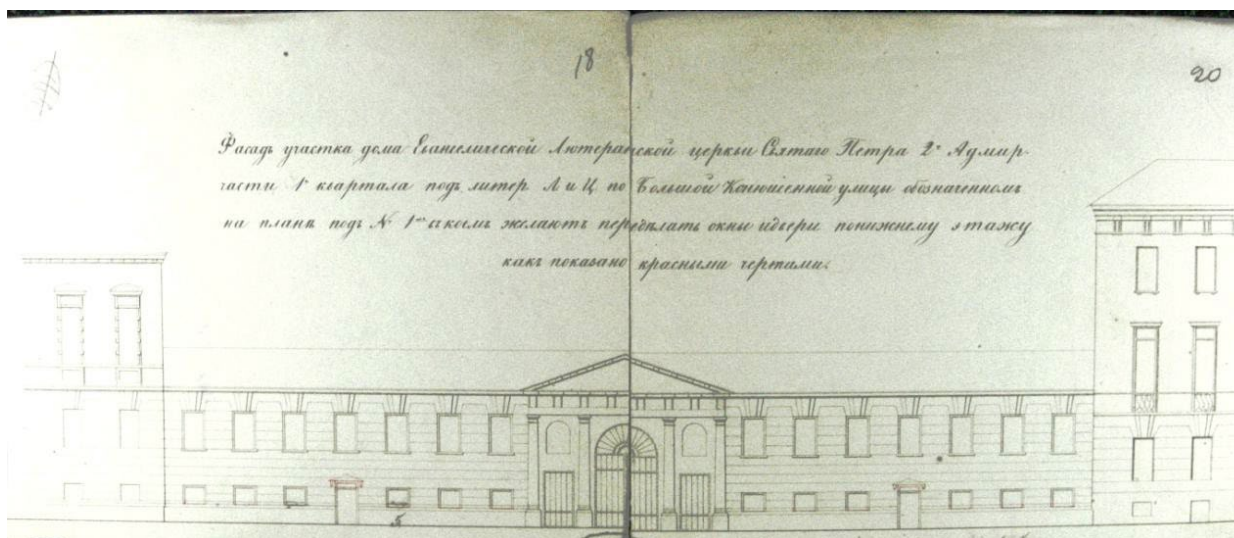 18
20
Фасадъ участка дома Евангелической Лютеранской церкви Святаго Петра 2й Адмир-
части 1го квартала подъ литер Л и Ц по Большой Конюшенной улицы обозначенномъ
на плане подъ № 1мъ въ коемъ желаютъ переделать окны и двери по нижнему этажу
какъ показано красными чертами.